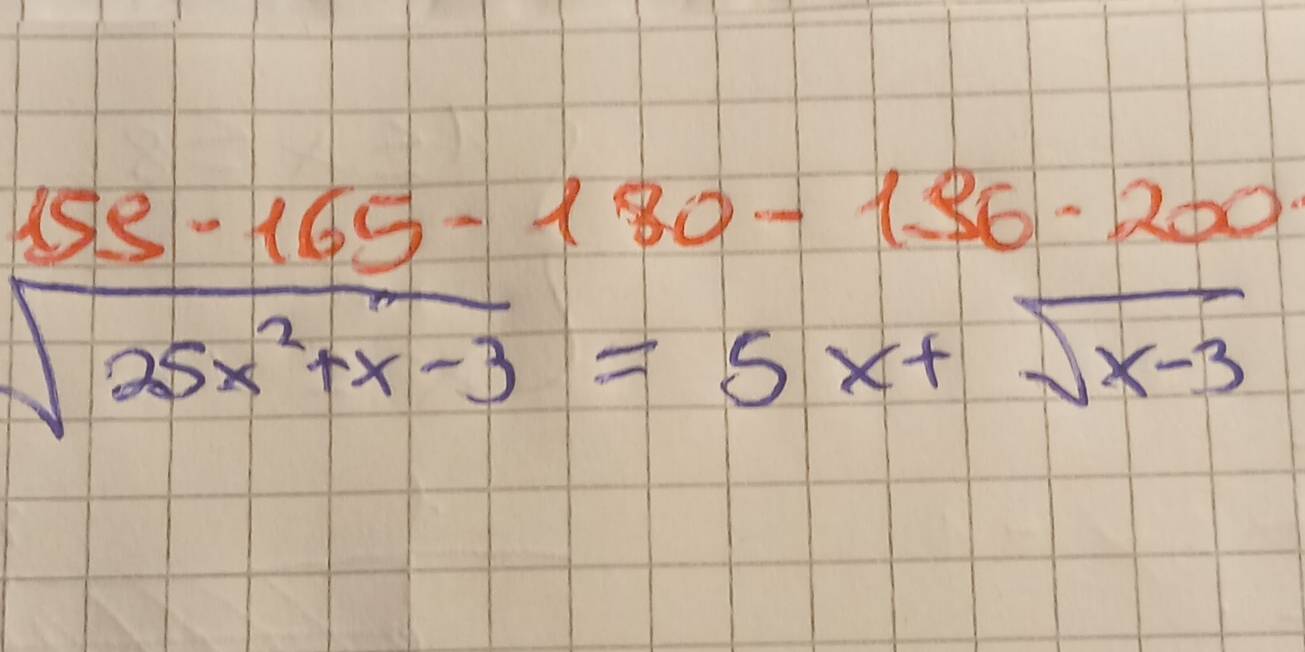 159-165-180-196-200-
√(25x²+x-3) = 5x+√(x-3)